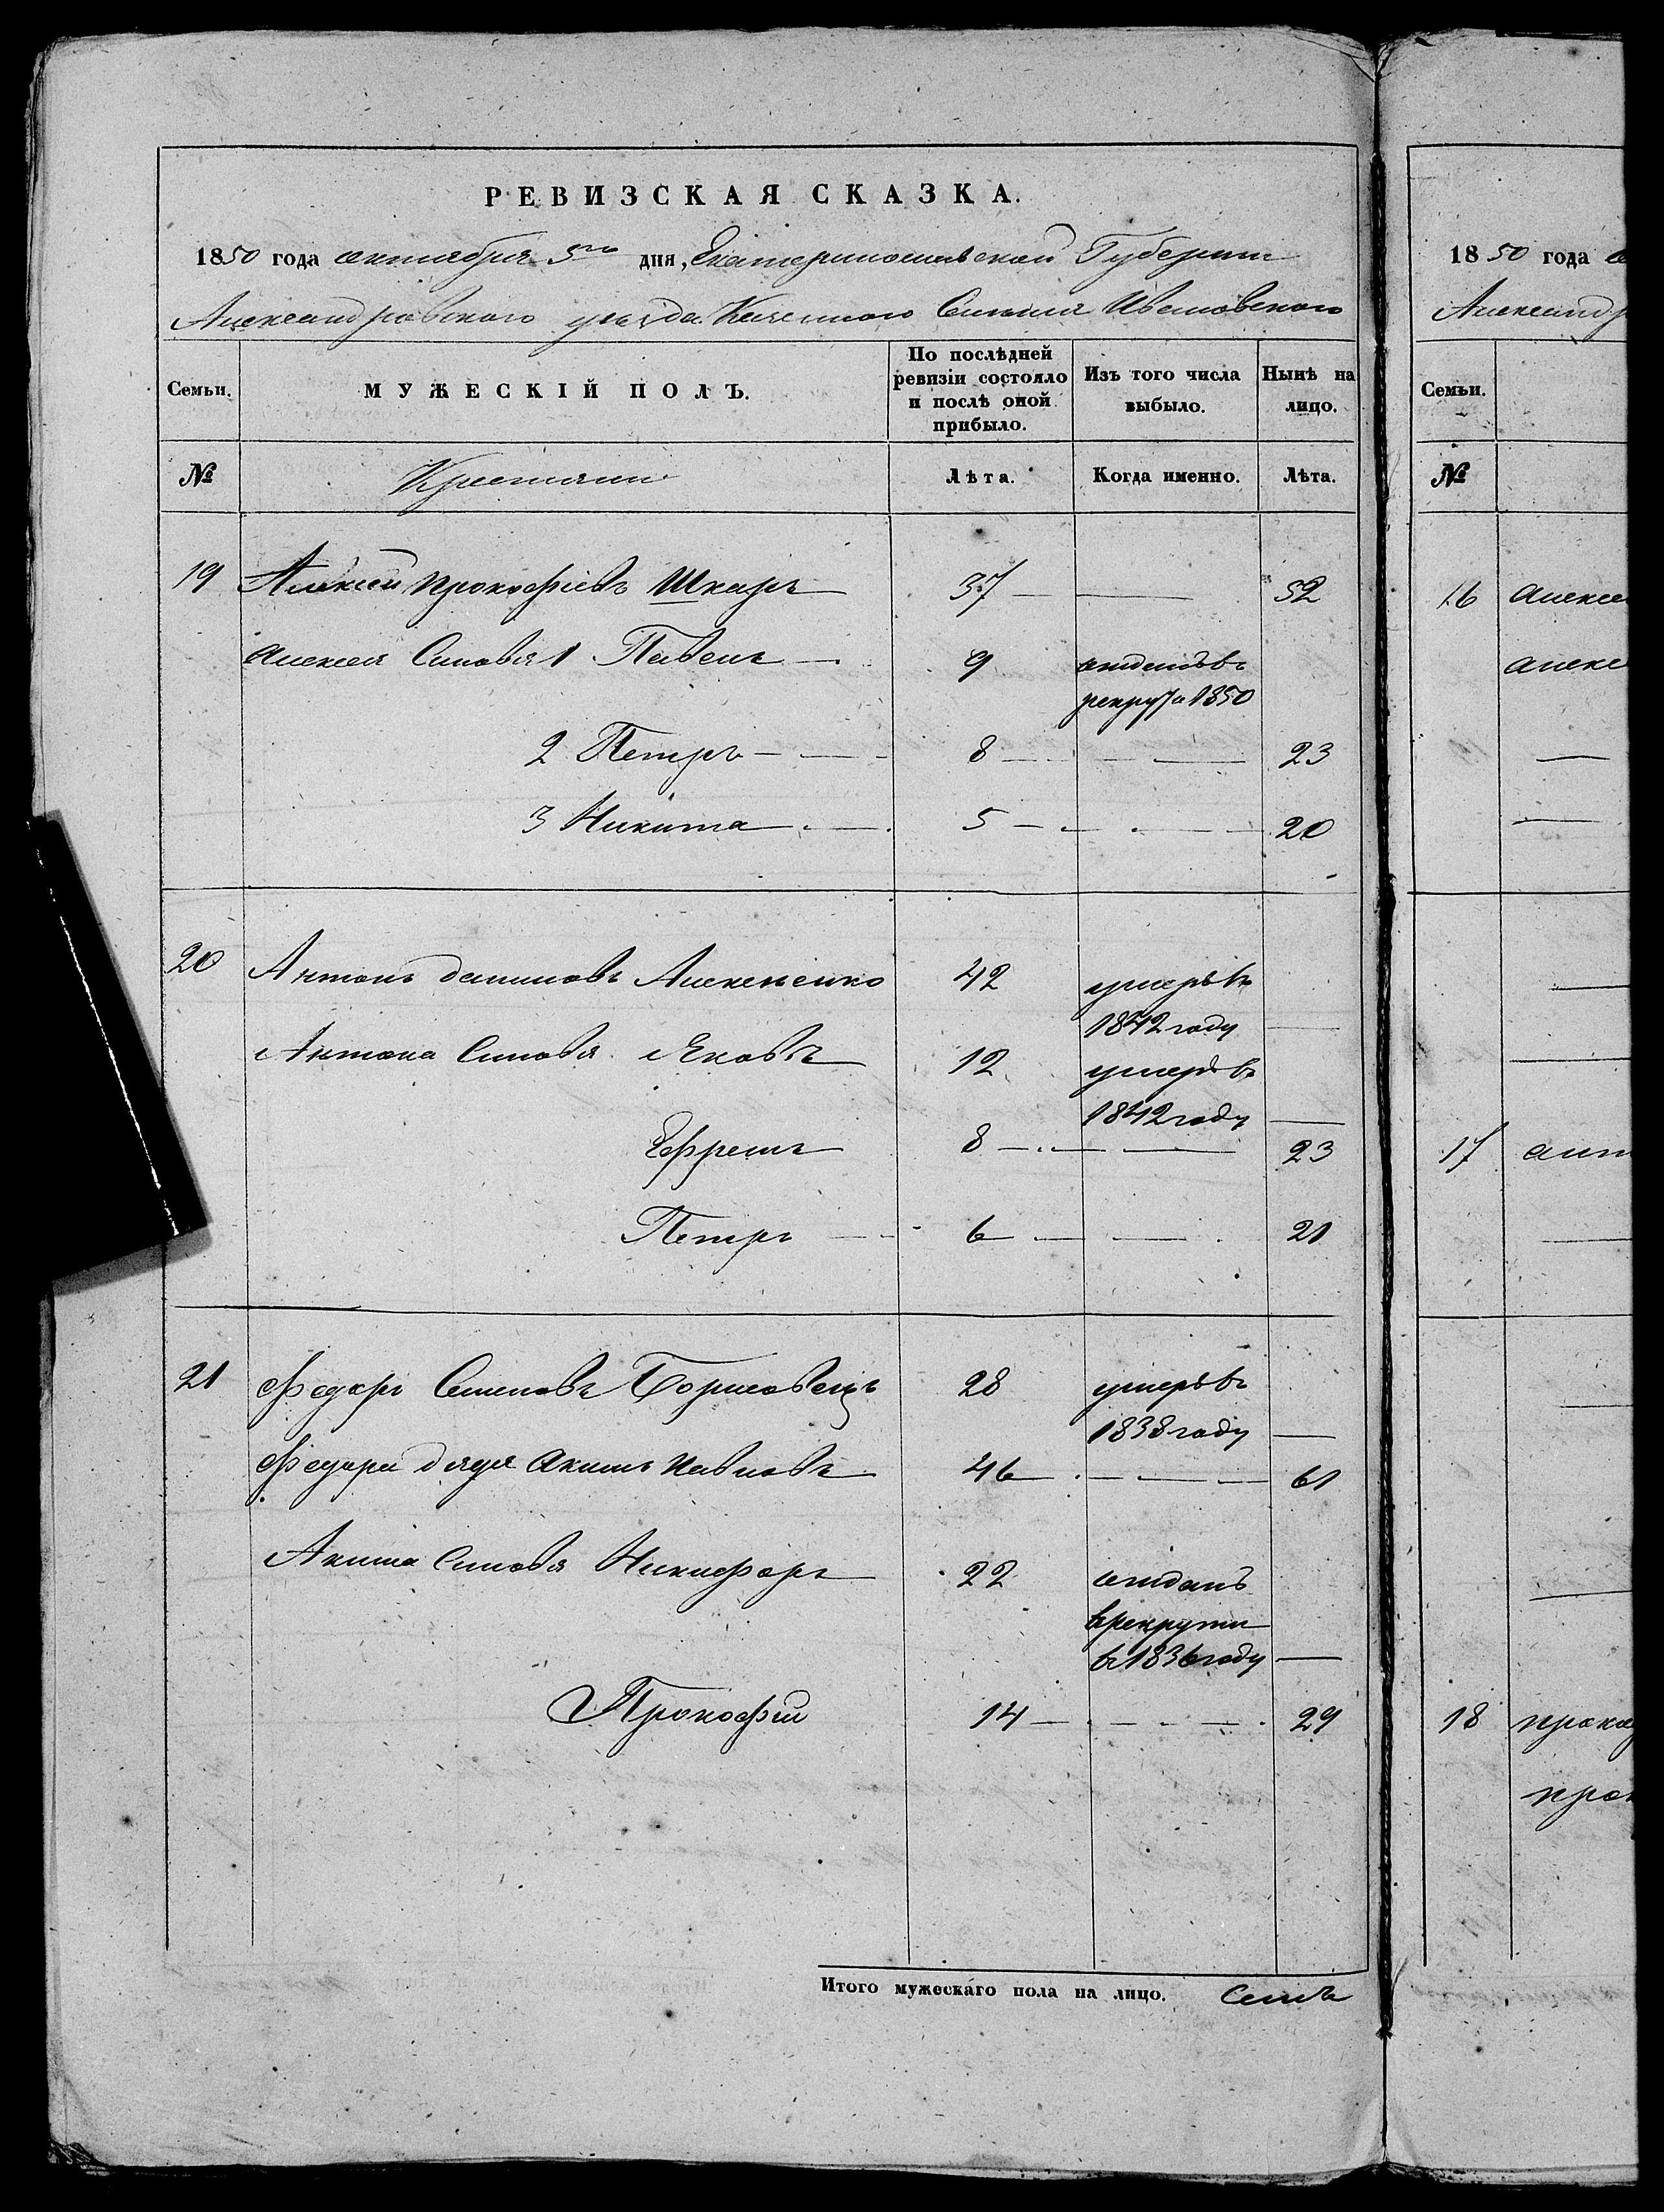 РЕВИЗСКАЯ СКАЗКА.
1850 года октября 5го дня, Екатеринославской Губернии
Александровского уезда Казенного Селения Ивановского
Семьи.
МУЖЕСКІЙ ПОЛЪ.
По послѣдней ревизіи состояло и послѣ оной прибыло.
Изъ того числа выбыло.
Нынѣ на лицо.
№
Крестяни
Лѣта.
Когда именно.
Лѣта.
19 Алексей Прокофіевъ Шкаръ 37 52
Алексея Синовя 1 Павелъ 9 отданъ в рекрута 1850
2 Петръ 8 23
3 Никита 5 20
20 Антонъ Даниловъ Алексеенко 42 умеръ в 1842 году
Антона Синовя Яковъ 12 умеръ в 1842 году
Ефремъ 8 23
Петръ 6 21
21 Федоръ Семеновъ Борисовецъ 28 умеръ в 1838 году
Федора дядя Акимъ Павловъ 46 61
Акима Синовя Никифоръ 22 отданъ в рекрути в 1836 году
Прокофій 14 29
Итого мужескаго пола на лицо. Семь
1850 года
Александр
Семьи.
№
16 Алексе
Алексе
17 Ант
18 Проко
Про